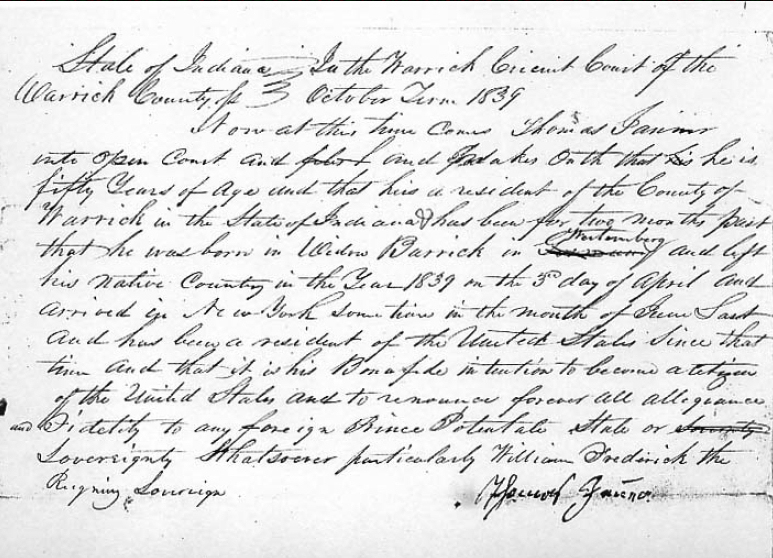 State of Indiana } In the Warrick Circuit Court of the
Warrick County, ss } October Term 1839
Now at this time comes Thomas
into open Court and and makes Oath that he is
fifty Years of Age and that his a resident of the County of
Warrick in the State of Indiana & has been for two months past
that he was born in Barrick in Wertemberg and left
his native Country in the Year 1839 on the 3rd day of April and
arrived in New York sometime in the month of June Last
and has been a resident of the United States Since that
time and that it is his Bonafide intention to become a citizen
of the United States and to renounce forever all allegiance
and Fidelity to any foreign Prince Potentate State or
Sovereignty Whatsoever particularly William Frederick the
Reigning Sovereign